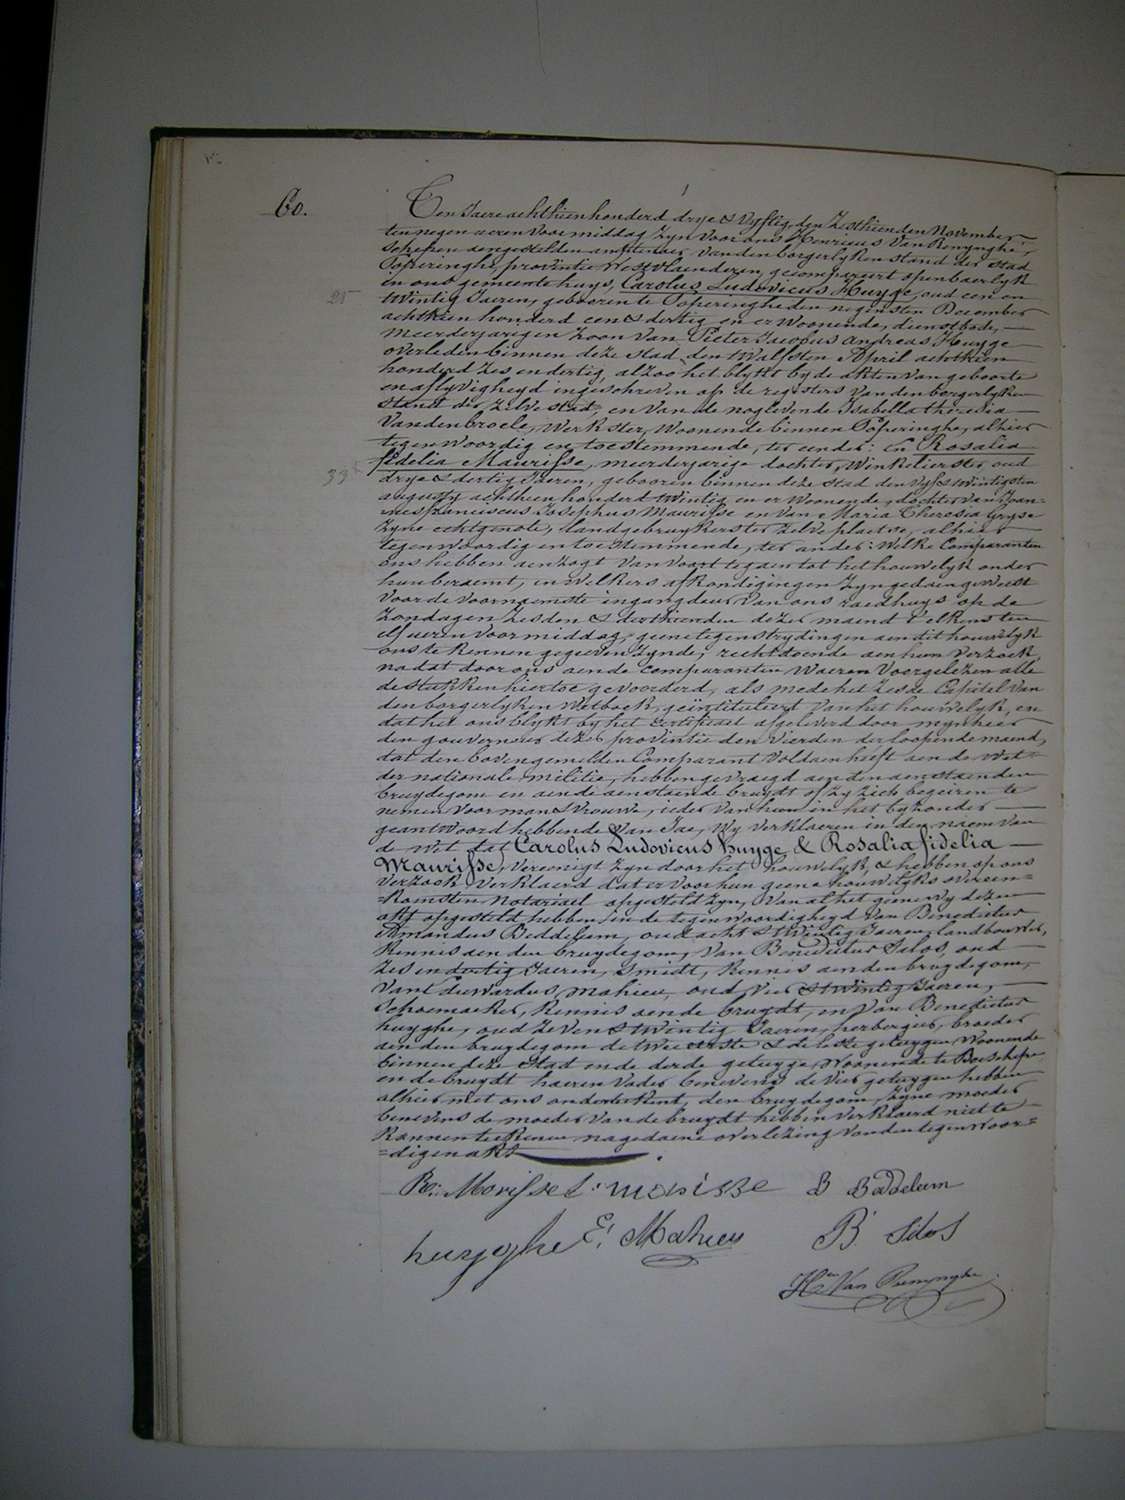 60.
Ten Jaere achthienhonderd drye & vyftig, den zesthienden November
ten negen ueren voor middag zyn voor ons Henricus Van Renynghe,
schepen aengestelden amptenaer van den borgerlyken stand der stad
Poperinghe, provintie Westvlaenderen, gecompareert openbaerlyk
in ons gemeentehuys, Carolus Ludovicus Huyge, oud een en
twintig Jaeren, geboren te Poperinghe den negensten December
achthien honderd een & dertig en er woonende, dienstbode,
meerderjarigen zoon van Pieter Jacobus Andreas Huyge
overleden binnen deze stad den twalfsten April achthien
honderd zes en dertig, alzoo het blykt by de akten van geboorte
en aflyvigheyd ingeschreven op de registers van den borgerlyken
stand der zelve stad, en van de noglevende Isabella Theresia
Vandenbroele, werkster, woonende binnen Poperinghe, alhier
tegenwoordig en toestemmende, ter eender: en Rosalia
fidelia Maurisse, meerderjarige dochter, winkelierster oud
drye & dertig Jaeren, geboren binnen deze stad den vyf & twintigsten
augusty achthien honderd twintig en er woonende, dochter van Joan-
nes franciscus Josephus Maurisse en van Maria Theresia Gryse
zyne echtgenote, landgebruykers ter zelve plaetse, alhier
tegenwoordig en toestemmende, ter ander: Welke Comparanten
ons hebben aenzogt van voort te gaen tot het houwelyk onder
hun beraemt, en welkers afkondigingen zyn gedaen geweest
voor de voornaemste ingangdeur van ons raedhuys op de
zondagen zesden & derthienden dezer maend t'elkens ten
elf ueren voormiddag, geene tegenstrydingen aen dit houwelyk
ons te kennen gegeven zynde, recht doende aen hun verzoek,
na dat door ons aen de comparanten waeren voorgelezen alle
de stukken hiertoe gevoorderd, als mede het zesde Capittel van
den borgerlyken Wetboek, geïntituleert van het houwelyk, en
dat het ons blykt by het certificaet afgeleverd door mynheer
den gouverneur dezer provintie den vierden der loopende maend,
dat den bovengemelden Comparant voldaen heeft aen de wet
der nationale militie, hebben gevraegd aen den aenstaenden
bruydegom en aen de aenstaende bruydt of zy zich begeiren te
nemen voor man & vrouwe, ieder van hun in het byzonder
geantwoord hebbende van Jae, Wy verklaeren in den naem van
de Wet dat Carolus Ludovicus huyge & Rosalia fidelia
Maurisse, vereenigt zyn door het houwelyk, & hebben op ons
verzoek verklaerd dat er voor hun geene houwelyks overeen=
=komsten notariael opgesteld zyn, van al het gene wy dezen
akt opgesteld hebben in de tegenwoordigheyd van Benedictus
Amandus Beddeleem, oud acht & twintig Jaeren, landbouwer,
kennis aen den bruydegom, Van Benedictus Sdos, oud
zes en dertig Jaeren, Smidt, kennis aen den bruydegom,
Van Eduwardus Mahieu, oud vier & twintig Jaeren,
schoemaeker, kennis aen de bruydt, en Van Benedictus
huyghe, oud zeven & twintig Jaeren, herbergier, broeder
aen den bruydegom de twee eerste & de leste getuygen woonende
binnen deze stad en de derde getuyge, woonende te Boeschepe
en de bruydt haeren vader benevens de vier getuygen hebben
alhier met ons onderteekent, den bruydegom, zyne moeder
benevens de moeder van de bruydt hebben verklaerd niet te
konnen teekenen na gedaene overlezing van den tegenwoor=
=digen akt
R: Morisse L: morisse B Baddelem
huyghe E: Mahieu B Sdos
Hen Van Renynghe
25
33